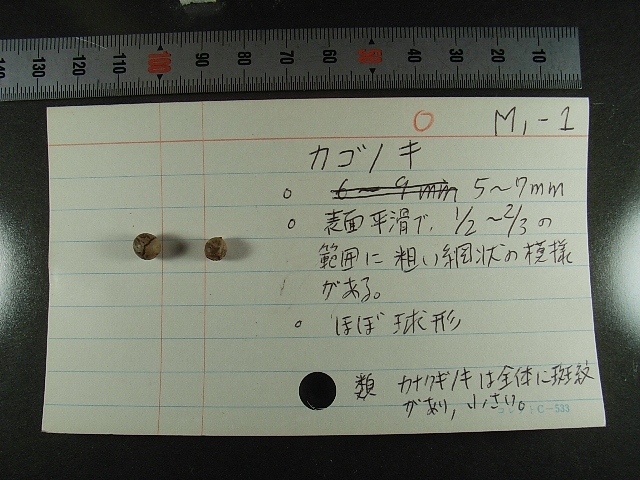 140 130 120 110 100 90 80 70 60 50 40 30 20 10
O M,-1
カゴノキ
。 6～9mm 5～7mm
。 表面平滑で、1/2～2/3の
範囲に粗い網状の模様
がある。
。 ほぼ球形
類 カナクギノキは全体に斑紋
があり,小さい。
C-533